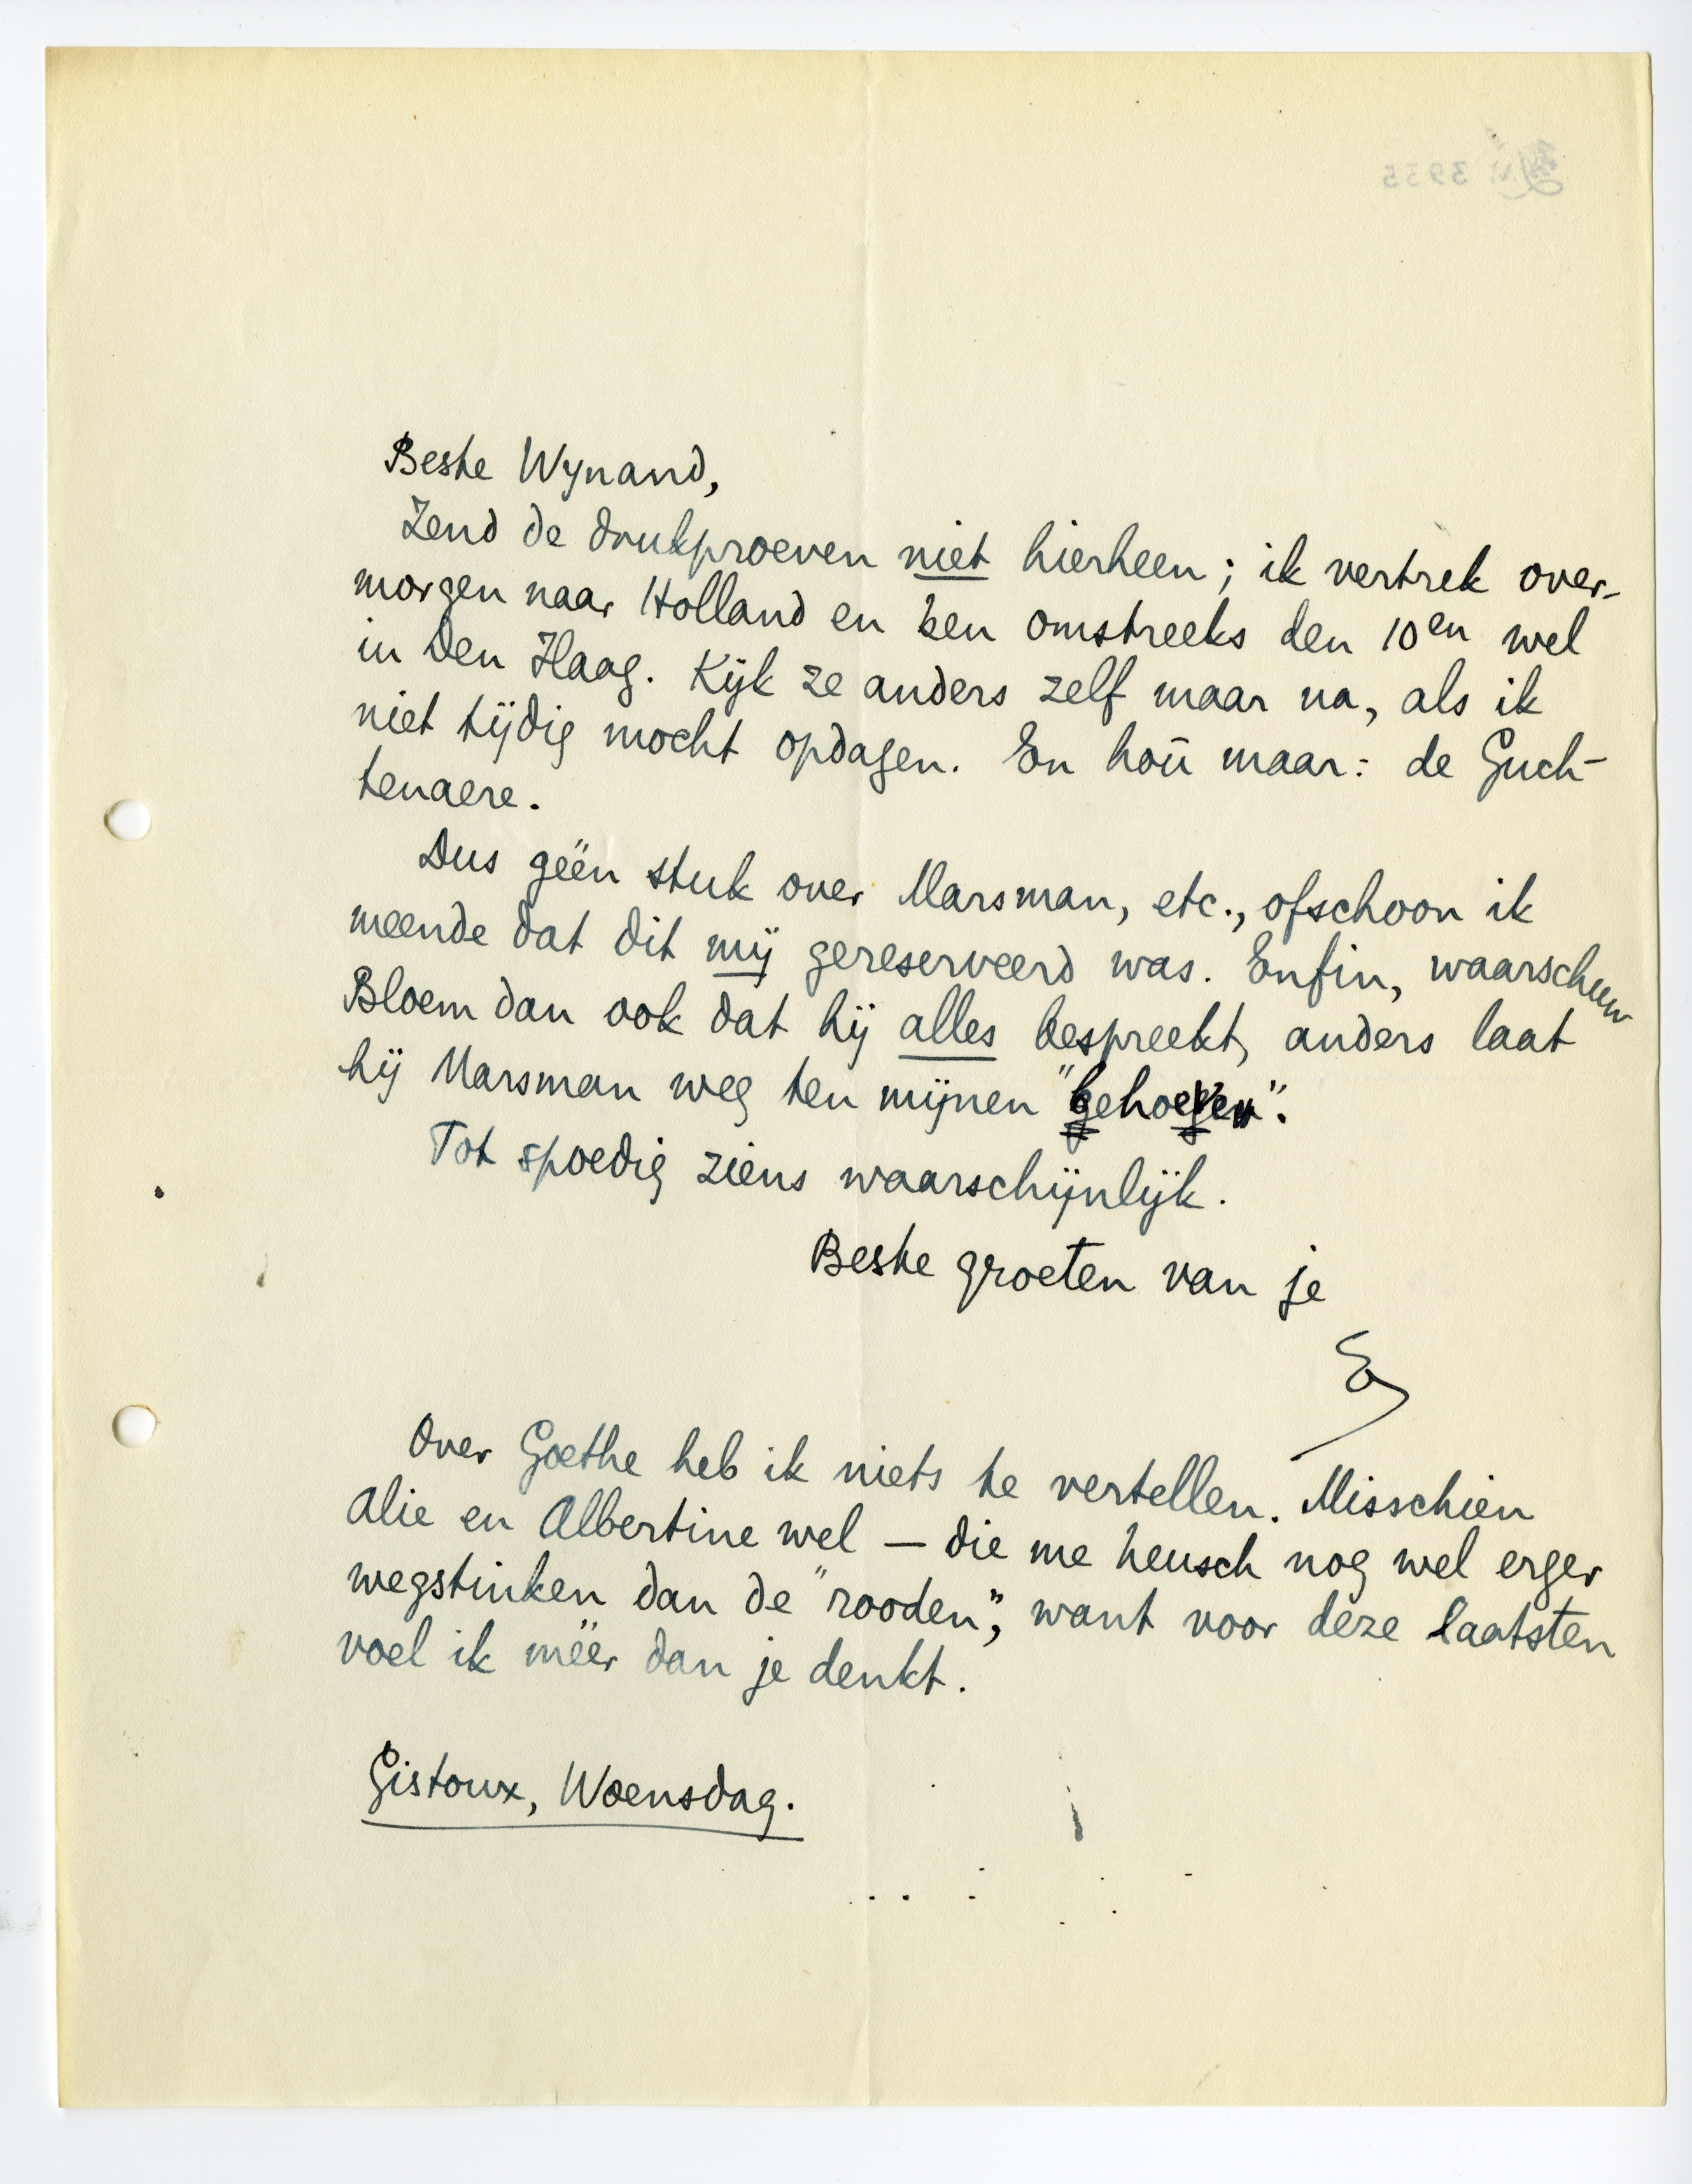 Beste Wynand,
Zend de drukproeven niet hierheen; ik vertrek over-
morgen naar Holland en ben omstreeks den 10en wel
in Den Haag. Kijk ze anders zelf maar na, als ik
niet tijdig mocht opdagen. En hoû maar: de Guch-
tenaere.
Dus géén stuk over Marsman, etc., ofschoon ik
meende dat dit mij gereserveerd was. Enfin, waarschuw
Bloem dan ook dat hij alles bespreekt, anders laat
hij Marsman weg ten mijnen "behoeven".
Tot spoedig ziens waarschijnlijk.
Beste groeten van je
E
Over Goethe heb ik niets te vertellen. Misschien
Alie en Albertine wel — die me heusch nog wel erger
wegstinken dan de "rooden", want voor déze laatsten
voel ik méér dan je denkt.
Gistoux, Woensdag.